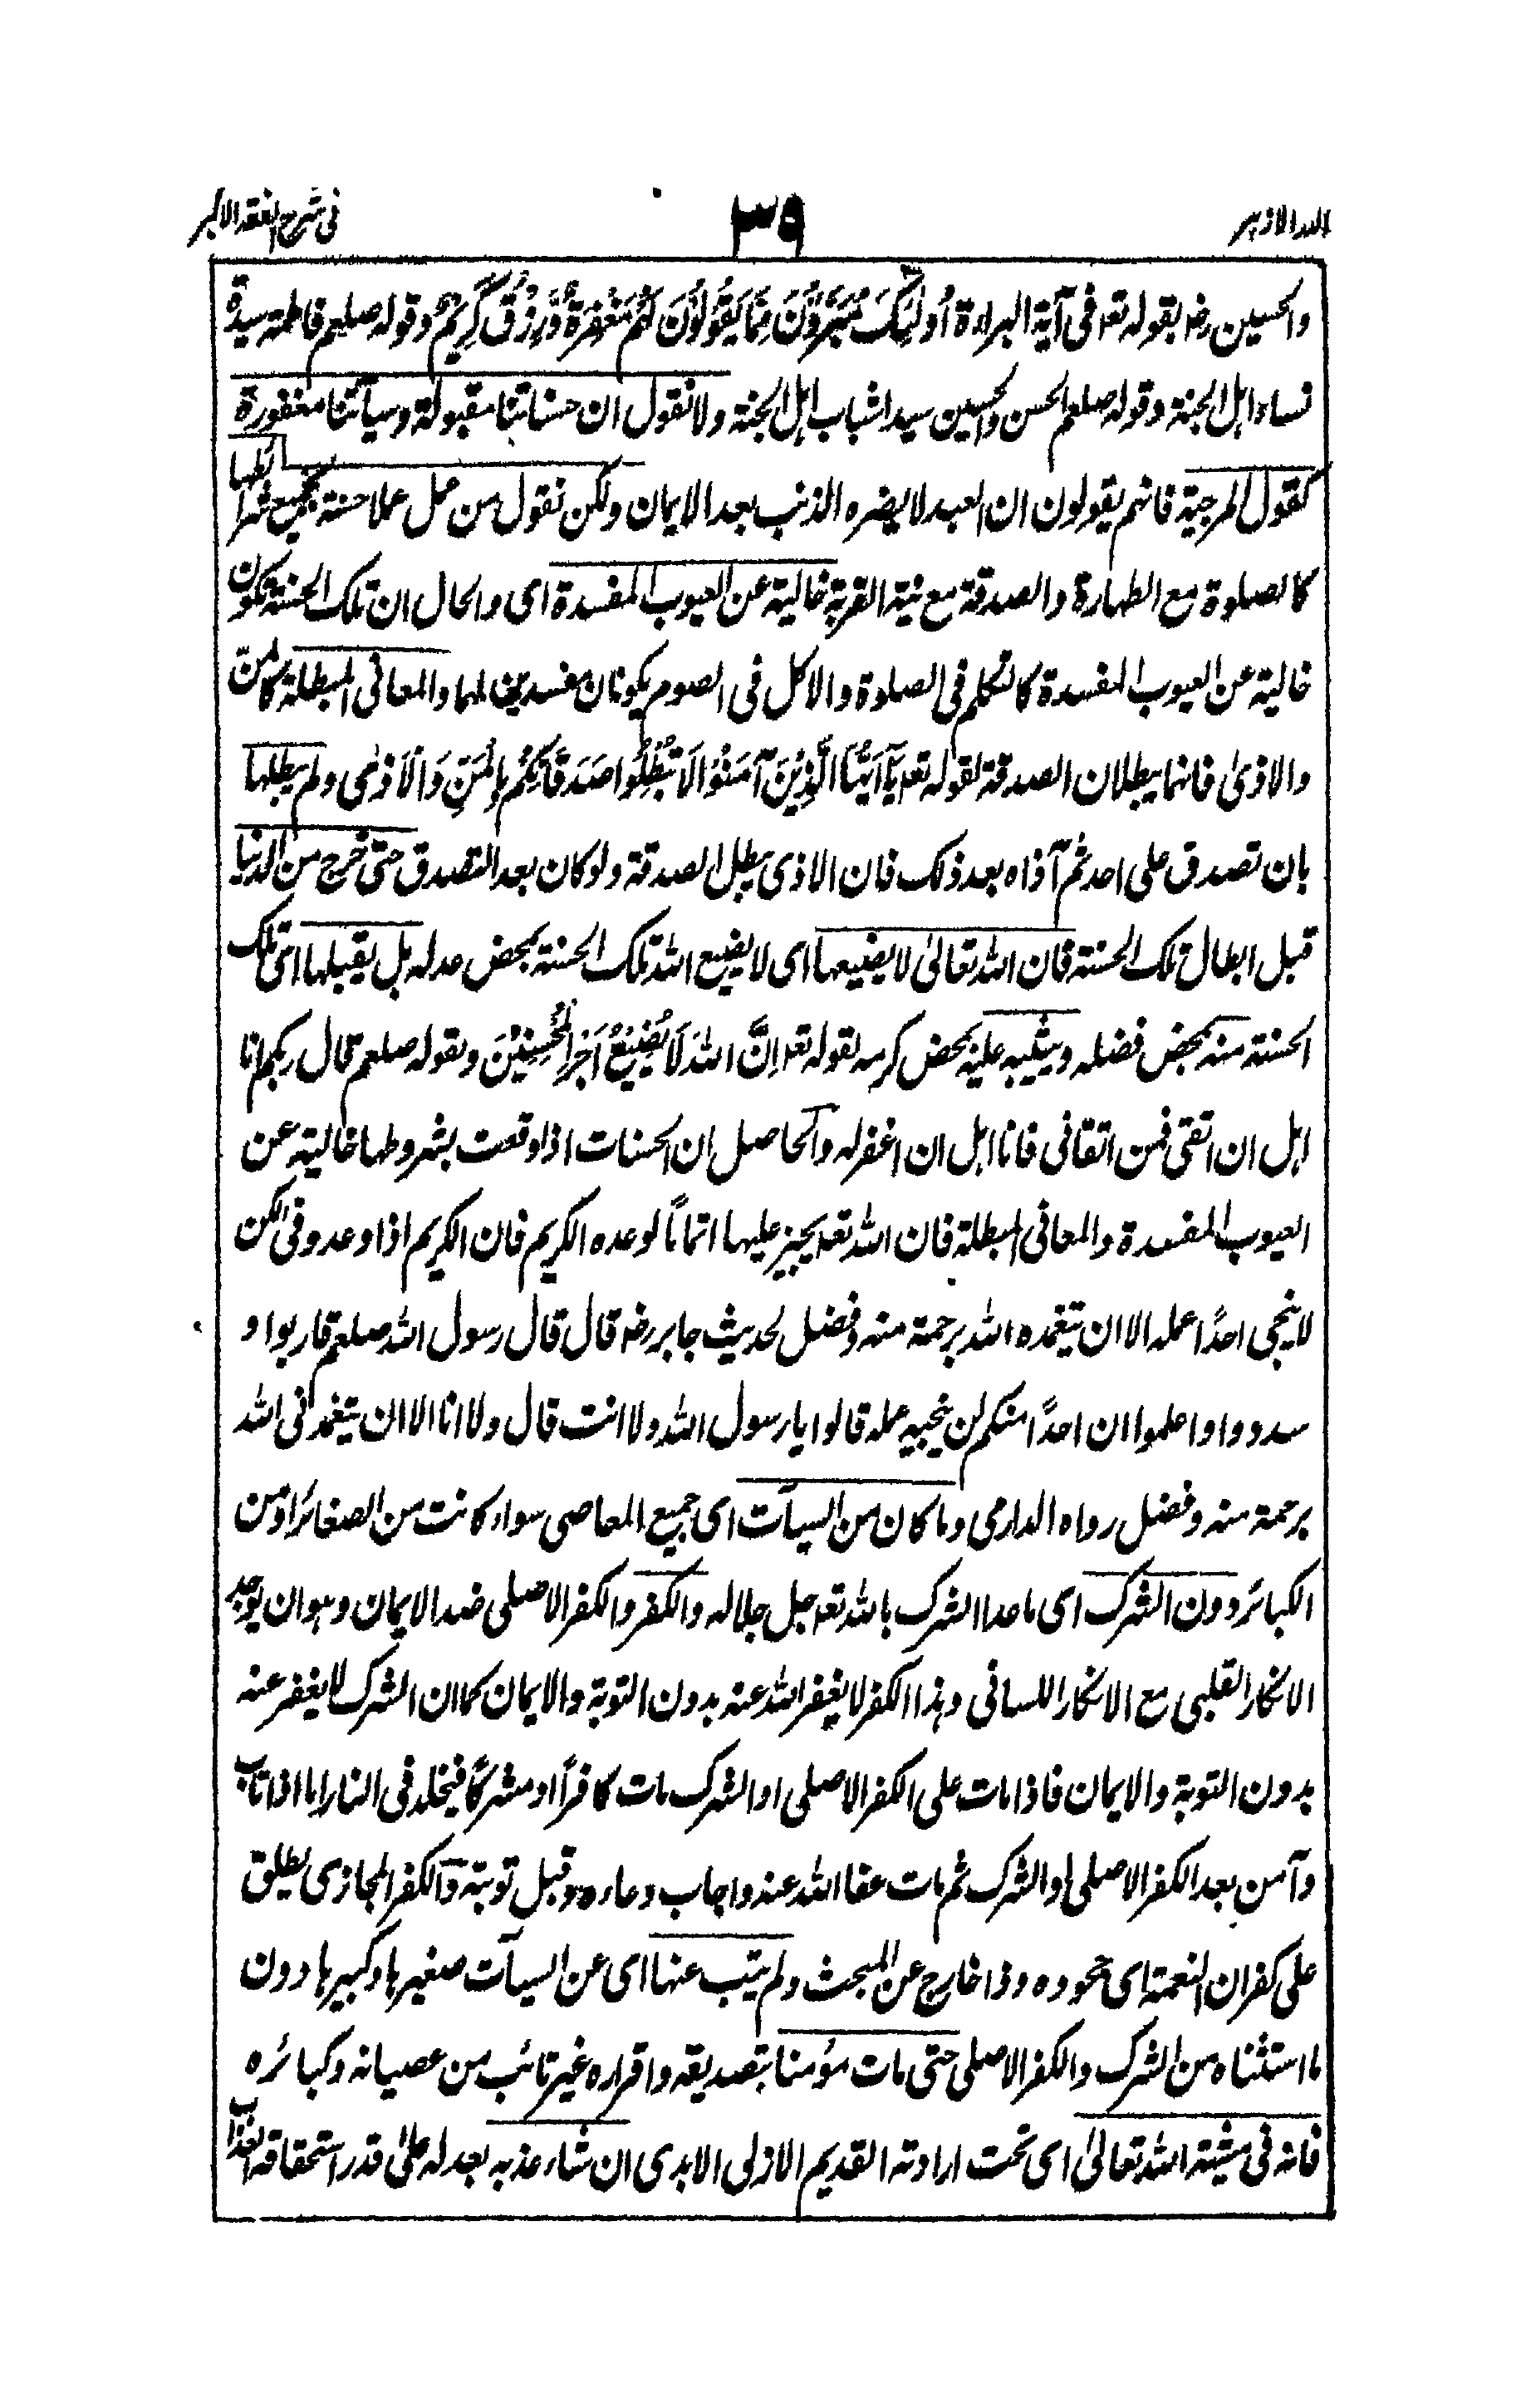 الدر الازهر ٣٩ فى شرح الفقه الاكبر
والحسين رضہ بقوله تعہ فى آية البراءة اُولٰٓئِكَ مُبَرَّؤُنَ مِمَّا يَقُوْلُوْنَ لَهُمْ مَغْفِرَةٌ وَّرِزْقٌ كَرِيْمٌ وقوله صلعم فاطمة سيدة
نساء اهل الجنة وقوله صلعم الحسن والحسين سيدا شباب اهل الجنة ولا نقول ان حسناتنا مقبولة وسيآتنا مغفورة
كقول المرجية فانهم يقولون ان العبد لا يضره الذنب بعد الايمان ولكن نقول من عمل عملا حسنة بجميع شرائطها
كالصلوة مع الطهارة والصدقة مع نية القربة خالية عن العيوب المفسدة اى والحال ان تلك الحسنة تكون
خالية عن العيوب المفسدة كالتكلم فى الصلوة والاكل فى الصوم يكونان مفسدين لهما والمعانى المبطلة كالمن
والاذىٰ فانهما يبطلان الصدقة لقوله تعہ يٰٓاَيُّهَا الَّذِيْنَ آمَنُوْا لَا تُبْطِلُوا صَدَقَاتِكُمْ بِالْمَنِّ وَالْاَذٰى ولم يبطلها
بان تصدق على احد ثم آذاه بعد ذلك فان الاذى يبطل الصدقة ولو كان بعد التصدق حتى خرج من الدنيا
قبل ابطال تلك الحسنة فان الله تعالىٰ لا يضيعها اى لا يضيع الله تلك الحسنة بمحض عدله بل يقبلها اى تلك
الحسنة منه بمحض فضله ويثيبه عليه بمحض كرمه لقوله تعہ اِنَّ اللهَ لَا يُضِيْعُ اَجْرَ الْمُحْسِنِيْنَ وبقوله صلعم قال ربكم انا
اهل ان اتقى فمن اتقانى فانا اهل ان اغفر له والحاصل ان الحسنات اذا وقعت بشروطها خالية عن
العيوب المفسدة والمعانى المبطلة فان الله تعہ يجيز عليها اتماناً لوعده الكريم فان الكريم اذا وعد وفى لكن
لا ينجى احدًا عمله الا ان يتغمده الله برحمة منه وفضل لحديث جابر رضہ قال قال رسول الله صلعم قاربوا و
سددوا واعلموا ان احدًا منكم لن ينجيه عمله قالوا يا رسول الله ولا انت قال ولا انا الا ان يتغمدنى الله
برحمة منه وفضل رواه الدارمى وما كان من السيآت اى جميع المعاصى سواء كانت من الصغائر او من
الكبائر دون الشرك اى ماعدا الشرك بالله تعہ جل جلاله والكفر والكفر الاصلى ضد الايمان وهو ان يوجد
الانكار القلبى مع الانكار اللسانى وهذا الكفر لا يغفر الله عنه بدون التوبة والايمان كما ان الشرك لا يغفر عنه
بدون التوبة والايمان فاذا مات على الكفر الاصلى او الشرك مات كافرًا او مشركًا فيخلد فى النار اما اذا تاب
وآمن بعد الكفر الاصلى او الشرك ثم مات عفا الله عنه واجاب دعاءه وقبل توبته والكفر المجازى يطلق
على كفران النعمة اى جحوده وذا خارج عن المبحث ولم يتب عنها اى عن السيآت صغيرها وكبيرها دون
ما استثناه من الشرك والكفر الاصلى حتى مات مؤمنا بتصديقه واقراره غير تائب من عصيانه وكبائره
فانه فى مشية الله تعالىٰ اى تحت ارادته القديم الازلى الابدى ان شاء عذبه بعدله علىٰ قدر استحقاقه العذاب